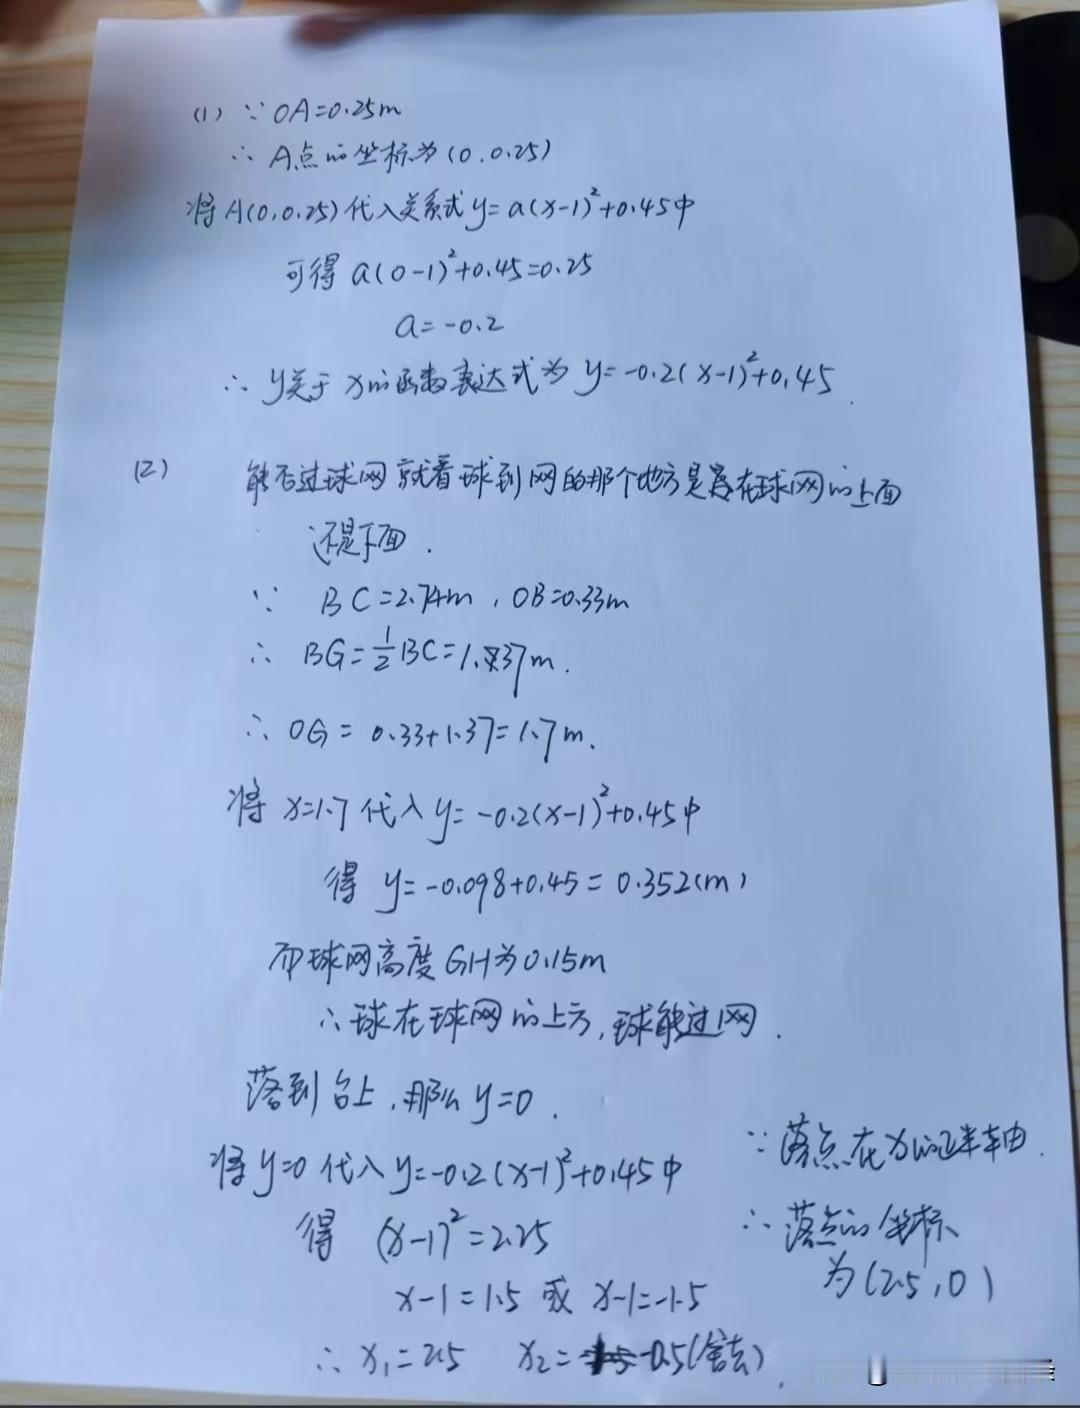 (1) ∵ OA=0.25m
∴ A点的坐标为(0,0.25)
将A(0,0.25)代入关系式y=a(x-1)²+0.45中
可得 a(0-1)²+0.45=0.25
a=-0.2
∴ y关于x的函数表达式为 y=-0.2(x-1)²+0.45
(2) 能否过球网就看球到网的那个地方是落在球网的上面
还是下面.
∵ BC=2.74m, OB=0.33m
∴ BG=½BC=1.37m.
∴ OG=0.33+1.37=1.7m.
将 x=1.7 代入 y=-0.2(x-1)²+0.45中
得 y=-0.098+0.45=0.352(m)
而球网高度GH为0.15m
∴球在球网的上方,球能过网.
落到台上,那么y=0.
将y=0代入y=-0.2(x-1)²+0.45中
得 (x-1)²=2.25
x-1=1.5 或 x-1=-1.5
∴ x₁=2.5 x₂=-0.5(舍去).
∵落点在x的正半轴.
∴落点的坐标
为(2.5,0)